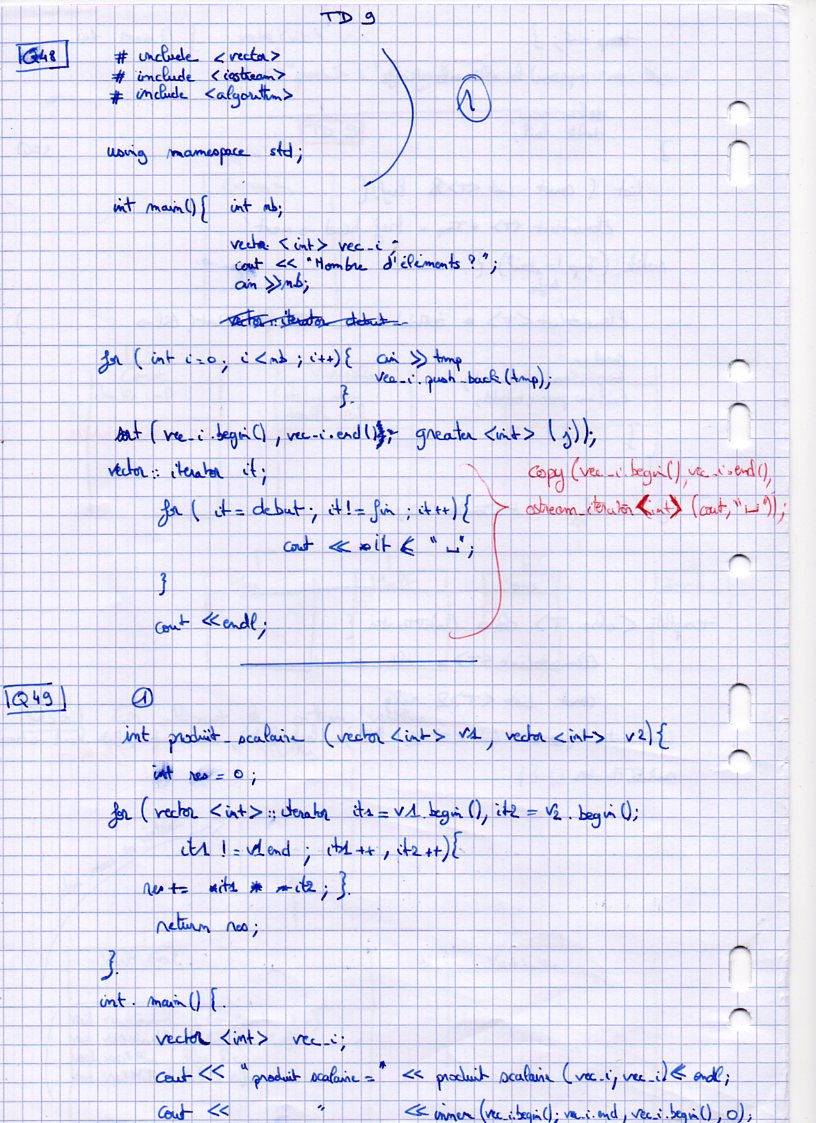 TD 9
Q48
# include <vector>
# include <iostream>
# include <algorithm>
①
using namespace std;
int main(){ int nb;
vector <int> vec_i;
cout << "Nombre d'éléments ?";
cin >> nb;
vector::iterator debut
for ( int i=0; i<nb ; i++){ cin >> tmp
vec_i.push_back(tmp);
}.
sort ( vec_i.begin() , vec_i.end(), greater <int> ( ));
vector:: iterator it;
copy (vec_i.begin(), vec_i.end(),
ostream_iterator <int> (cout, "␣"));
for ( it = debut ; it != fin ; it++){
cout << *it < "␣";
}
cout << endl;
Q49
①
int produit_scalaire (vector <int> v1 , vector <int> v2){
int res = 0;
for ( vector <int>:: iterator it1 = v1.begin(), it2 = v2.begin();
it1 != v1end ; it1++ , it2++){
res += *it1 * *it2; }.
return res;
}.
int. main() {.
vector <int> vec_i;
cout << "produit scalaire =" << produit scalaire (vec_i, vec_i) < endl;
cout << " << inner (vec_i.begin(); vec_i.end, vec_i.begin(), 0);